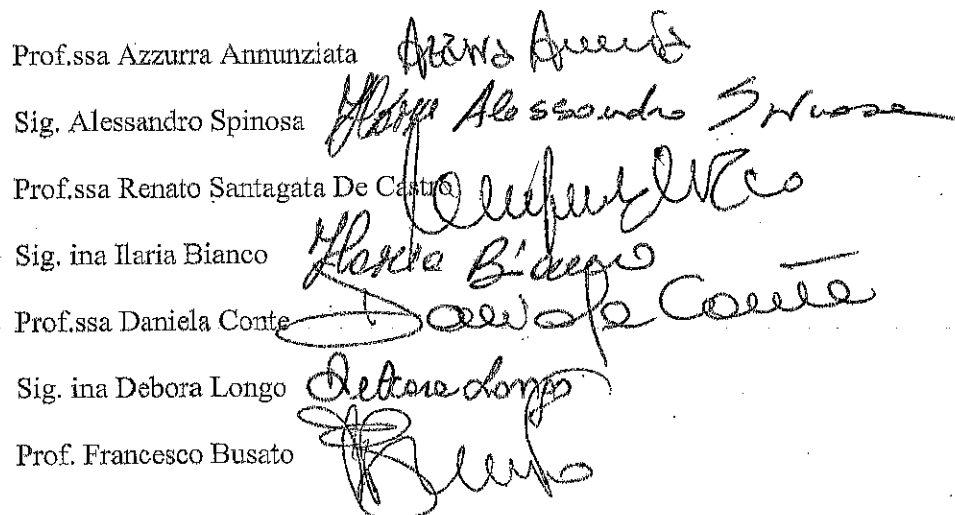 Prof.ssa Azzurra Annunziata
Sig. Alessandro Spinosa Alessandro Spinosa
Prof.ssa Renato Santagata De Castro
Sig. ina Ilaria Bianco Ilaria Bianco
Prof.ssa Daniela Conte Daniela Conte
Sig. ina Debora Longo Debora Longo
Prof. Francesco Busato